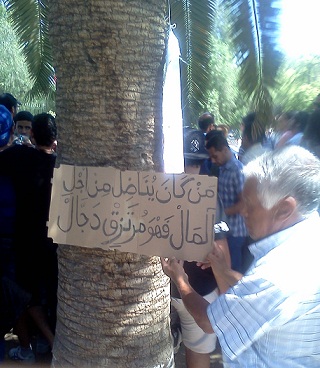 مَنْ كَانَ يُنَاضِلُ مِنْ اجْلِ
المَالْ فَهْوَ مُرتَزِقْ دَجَالْ